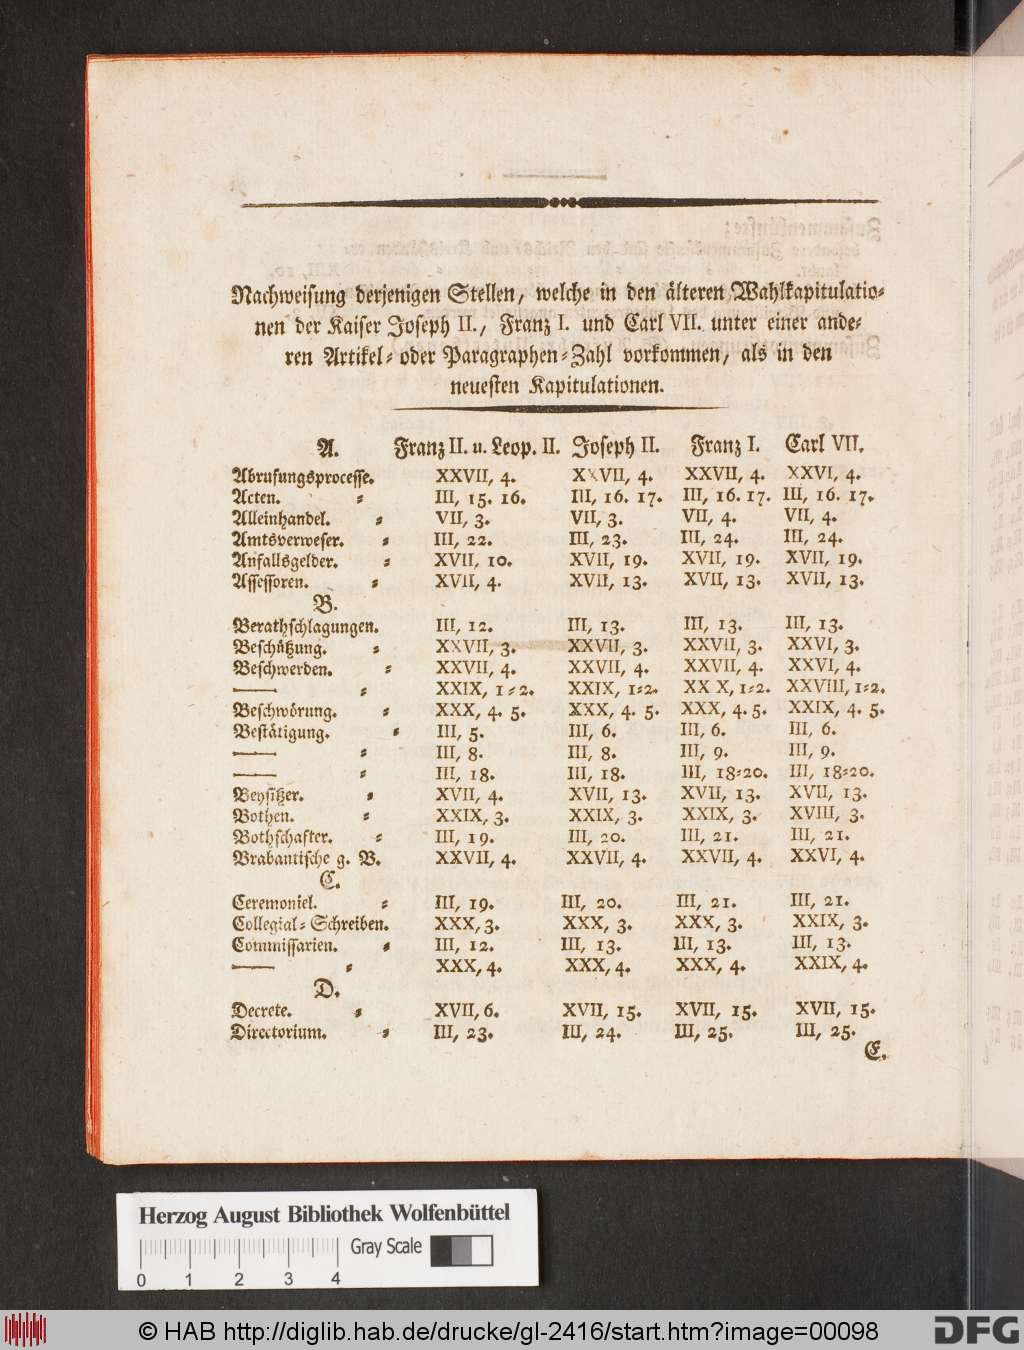 Nachweisung derjenigen Stellen, welche in den älteren Wahlkapitulatio-
nen der Kaiser Joseph II., Franz I. und Carl VII. unter einer ande-
ren Artikel- oder Paragraphen-Zahl vorkommen, als in den
neuesten Kapitulationen.
A. Franz II. u. Leop. II. Joseph II. Franz I. Carl VII.
Abrufungsprocesse. XXVII, 4. XXVII, 4. XXVII, 4. XXVI, 4.
Acten. - III, 15. 16. III, 16. 17. III, 16. 17. III, 16. 17.
Alleinhandel. - VII, 3. VII, 3. VII, 4. VII, 4.
Amtsverweser. - III, 22. III, 23. III, 24. III, 24.
Anfallsgelder. - XVII, 10. XVII, 19. XVII, 19. XVII, 19.
Assessoren. - XVII, 4. XVII, 13. XVII, 13. XVII, 13.
B.
Berathschlagungen. III, 12. III, 13. III, 13. III, 13.
Beschützung. - XXVII, 3. XXVII, 3. XXVII, 3. XXVI, 3.
Beschwerden. - XXVII, 4. XXVII, 4. XXVII, 4. XXVI, 4.
—— - XXIX, 1-2. XXIX, 1-2. XX X, 1-2. XXVIII, 1-2.
Beschwörung. - XXX, 4. 5. XXX, 4. 5. XXX, 4. 5. XXIX, 4. 5.
Bestätigung. - III, 5. III, 6. III, 6. III, 6.
—— - III, 8. III, 8. III, 9. III, 9.
—— - III, 18. III, 18. III, 18-20. III, 18-20.
Beysitzer. - XVII, 4. XVII, 13. XVII, 13. XVII, 13.
Bothen. - XXIX, 3. XXIX, 3. XXIX, 3. XVIII, 3.
Bothschafter. - III, 19. III, 20. III, 21. III, 21.
Brabantische g. B. XXVII, 4. XXVII, 4. XXVII, 4. XXVI, 4.
C.
Ceremoniel. - III, 19. III, 20. III, 21. III, 21.
Collegial-Schreiben. XXX, 3. XXX, 3. XXX, 3. XXIX, 3.
Commissarien. - III, 12. III, 13. III, 13. III, 13.
—— - XXX, 4. XXX, 4. XXX, 4. XXIX, 4.
D.
Decrete. - XVII, 6. XVII, 15. XVII, 15. XVII, 15.
Directorium. - III, 23. III, 24. III, 25. III, 25.
E.
Herzog August Bibliothek Wolfenbüttel
Gray Scale
0 1 2 3 4
© HAB http://diglib.hab.de/drucke/gl-2416/start.htm?image=00098
DFG